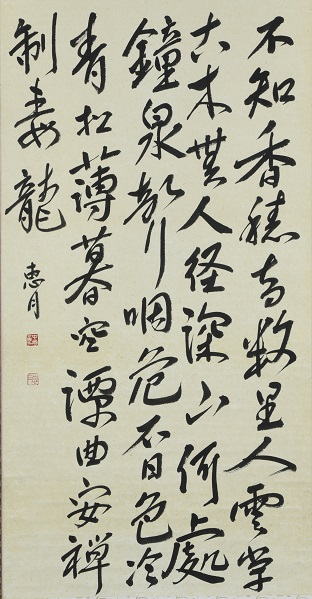 不知香積寺数里入雲峯
古木無人径深山何處
鐘泉聲咽危石日色冷
青松薄暮空潭曲安禪
制毒龍
惠月